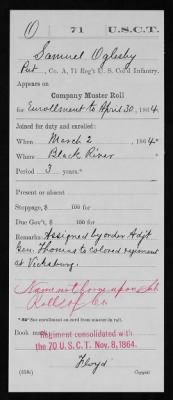 O 71 U.S.C.T.
Samuel Oglesby
Pvt., Co. A, 71 Reg't U. S. Col'd Infantry.
Appears on
Company Muster Roll
for Enrollment to April 30, 1864.
Joined for duty and enrolled:
When March 2, 1864*
Where Black River
Period 3 years.*
Present or absent
Stoppage, $ 100 for
Due Gov't, $ 100 for
Remarks: Assigned by order Adjt
Gen. Thomas to colored regiment
at Vicksburg.
Name not borne upon
Rolls of Co
*See enrollment on card from muster-in roll.
Book mark:
Regiment consolidated with
the 70 U.S.C.T. Nov. 8, 1864.
Floyd
Copyist.